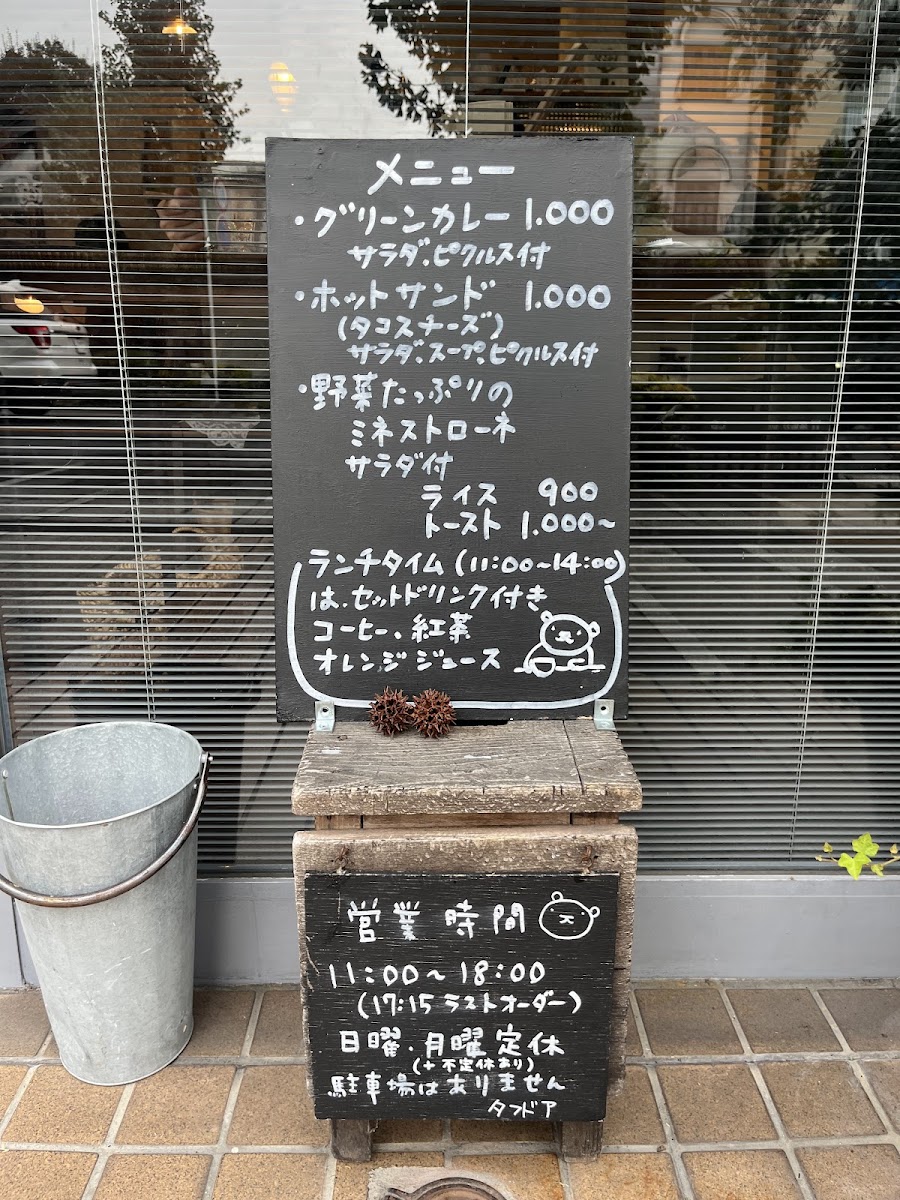 メニュー
・グリーンカレー 1.000
サラダ、ピクルス付
・ホットサンド 1.000
(タコスチーズ)
サラダ、スープ、ピクルス付
・野菜たっぷりの
ミネストローネ
サラダ付
ライス 900
トースト 1.000~
ランチタイム(11:00~14:00)
は、セットドリンク付き
コーヒー、紅茶
オレンジジュース
営業時間
11:00~18:00
(17:15ラストオーダー)
日曜・月曜定休
(+不定休あり)
駐車場はありません
タフドア